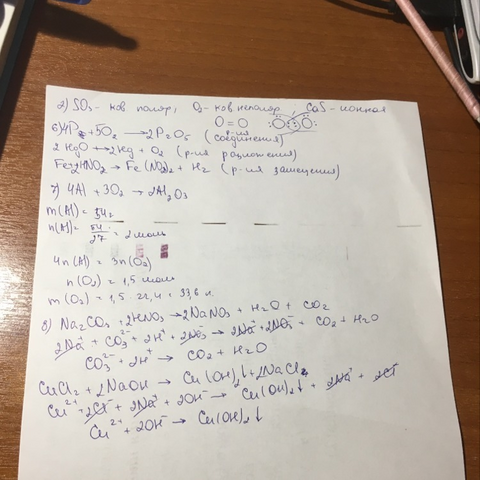 2) SO₃ - ков поляр; O₂ - ков неполяр, CaS - ионная
O = O
6) 4P + 5O₂ → 2P₂O₅ (р-ия соединения)
2 HgO → 2Hg + O₂ (р-ия разложения)
Fe + 2HNO₃ → Fe(NO₃)₂ + H₂ (р-ия замещения)
7) 4Al + 3O₂ → 2Al₂O₃
m(Al) = 54г
n(Al) = 54/27 = 2 моль
4n(Al) = 3n(O₂)
n(O₂) = 1,5 моль
m(O₂) = 1,5 · 22,4 = 33,6 л.
8) Na₂CO₃ + 2HNO₃ → 2NaNO₃ + H₂O + CO₂
2Na⁺ + CO₃²⁻ + 2H⁺ + 2NO₃⁻ → 2Na⁺ + 2NO₃⁻ + CO₂ + H₂O
CO₃²⁻ + 2H⁺ → CO₂ + H₂O
CuCl₂ + 2NaOH → Cu(OH)₂↓ + 2NaCl
Cu²⁺ + 2Cl⁻ + 2Na⁺ + 2OH⁻ → Cu(OH)₂↓ + 2Na⁺ + 2Cl⁻
Cu²⁺ + 2OH⁻ → Cu(OH)₂↓